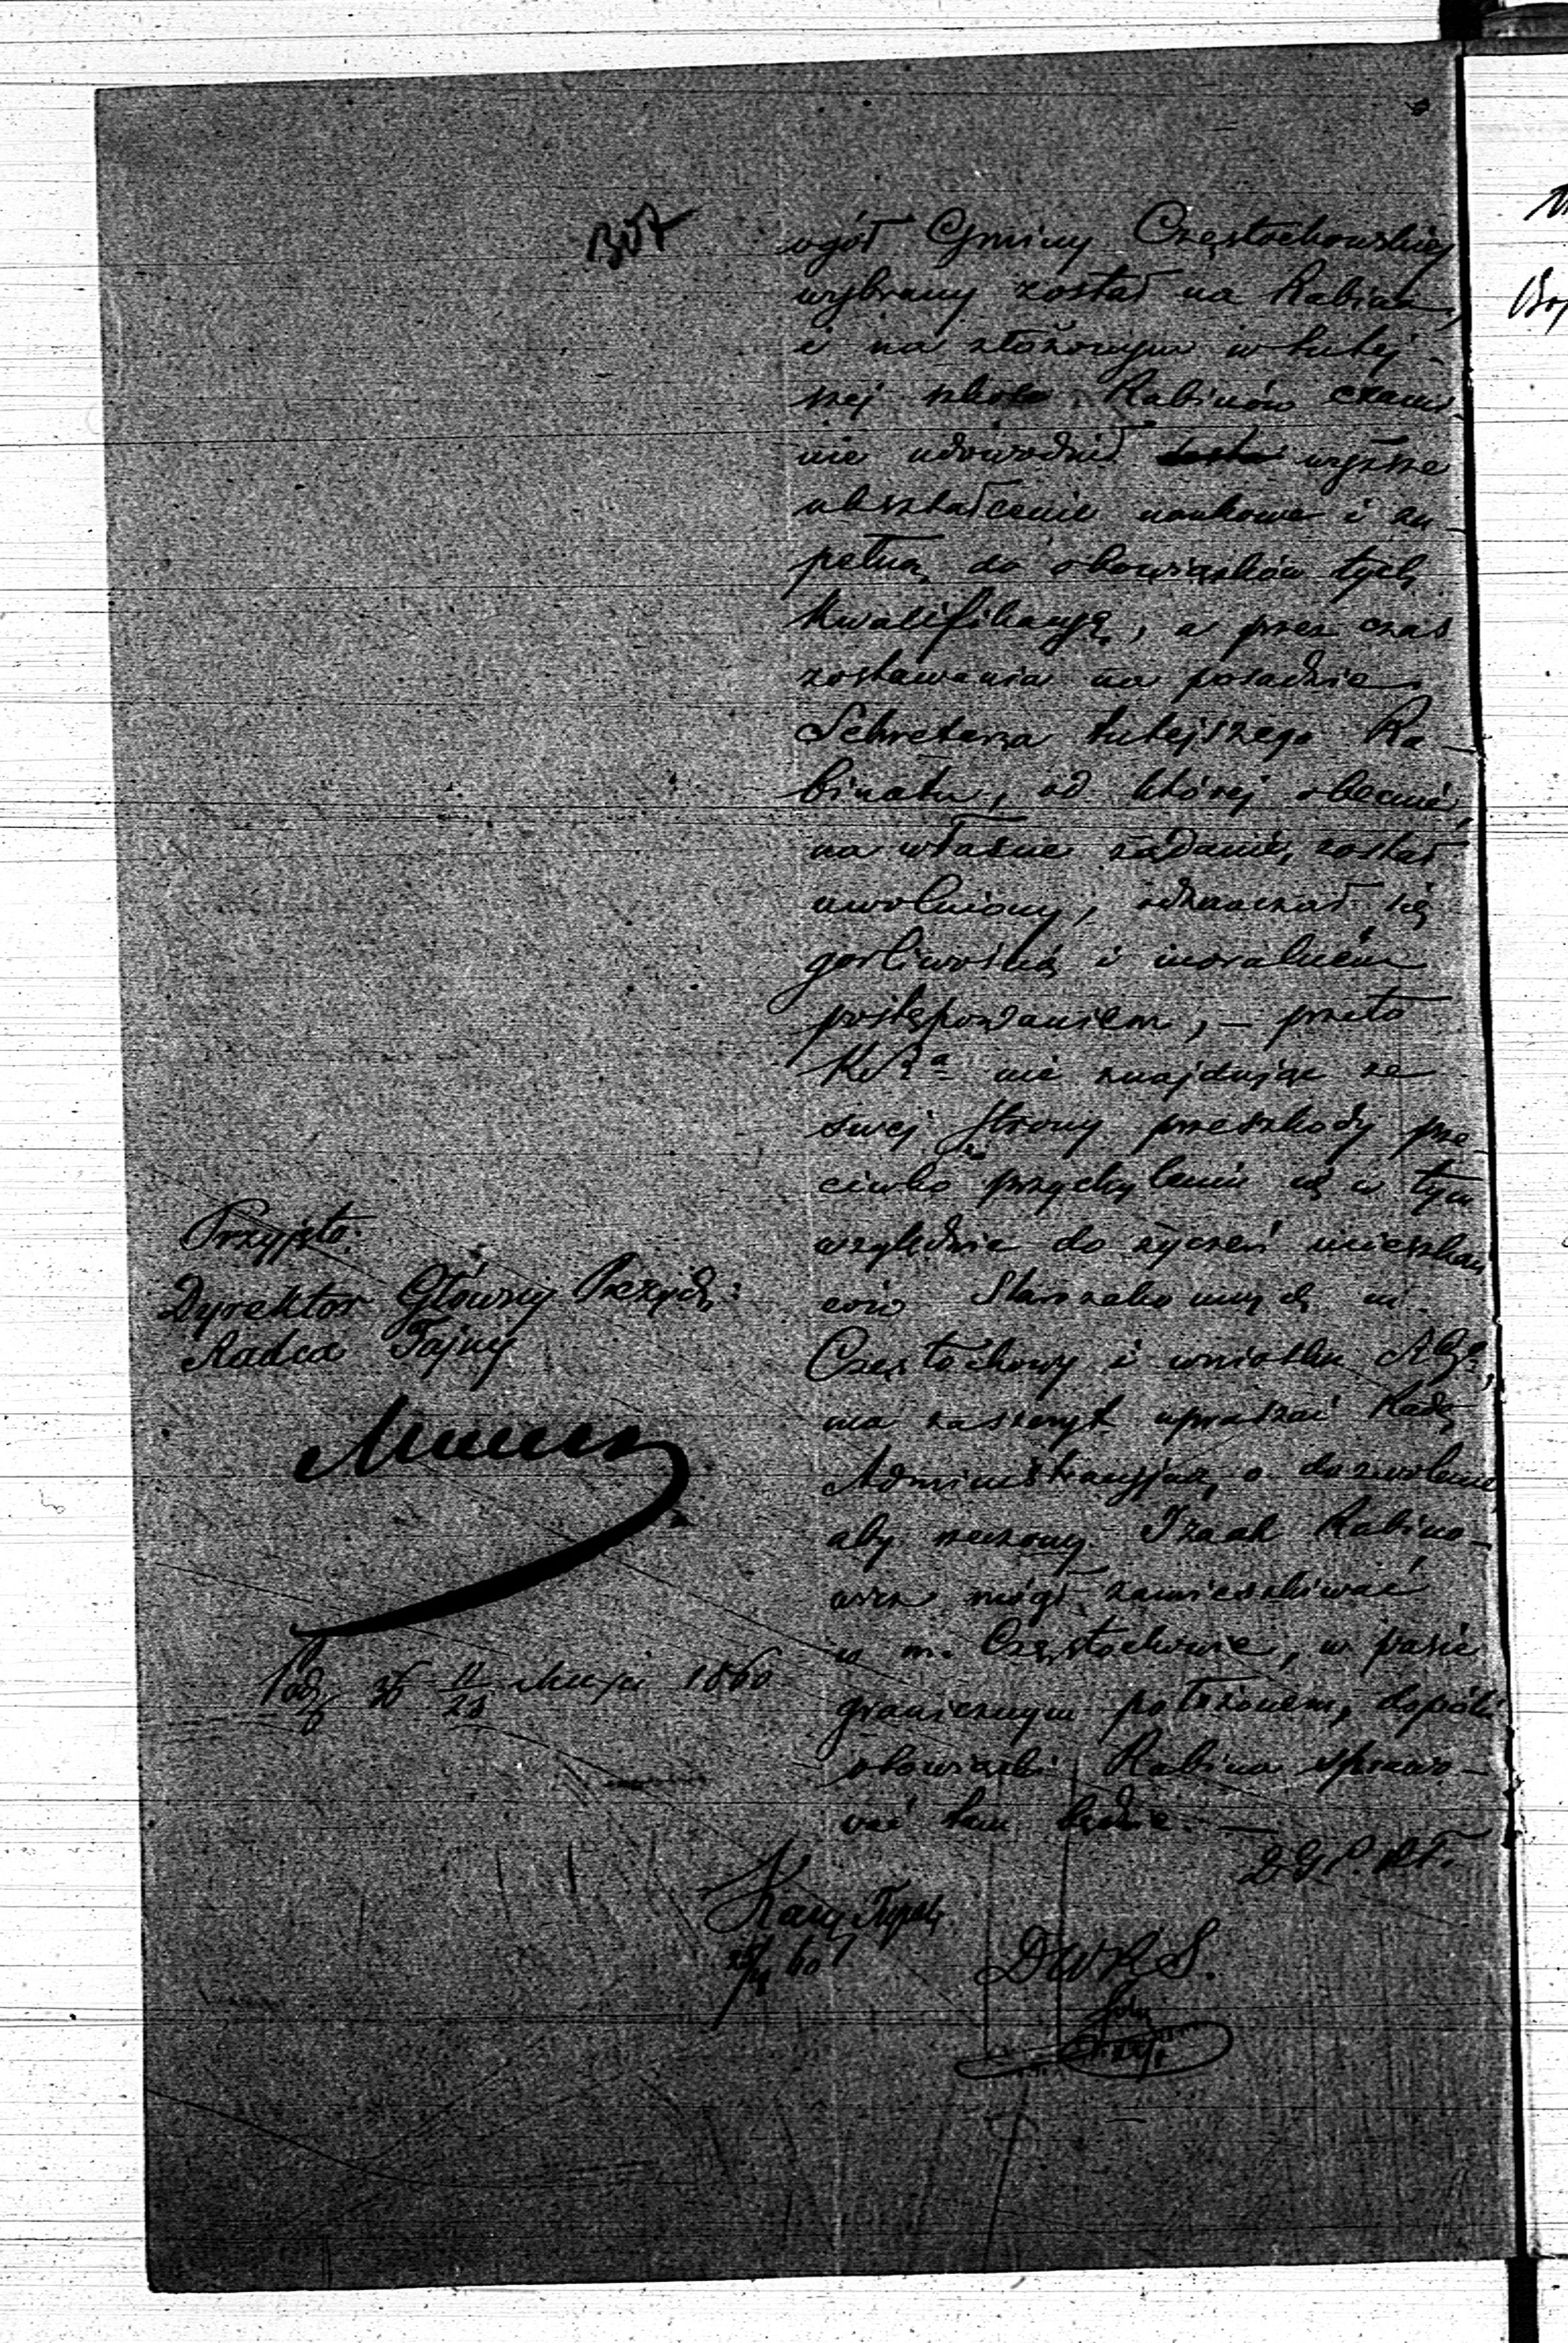 ogół Gminy Częstochowskiej
wybrany został na Rabina,
i na złożonym w tutej-
szej szkole Rabinów exami-
nie udowodnił wyższe
ukształcenie naukowe i zu-
pełną do obowiązków tych
kwalifikacyę, a przez czas
zostawania na posadzie
Sekretarza tutejszego Ra-
binatu, od której obecnie,
na własne żądanie, został
uwolniony, odznaczał się
gorliwością i moralném
postępowaniem, — przeto
KRa nie znajdując ze
swej strony przeszkody prze-
ciwko przychyleniu się w tym
względzie do życzeń mieszkań
ców Starozakonnych m.
Częstochowy i wniosku
ma zaszczyt upraszać Radę
Administracyjną o dozwolenie
aby rzeczony Izaak Rabino-
wicz mógł zamieszkiwać
w m. Częstochowie, w pasie
granicznym położonem, dopóki
obowiązki Rabina sprawo-
wać tam będzie. —
D.G.P. R.T.
Przyjęto:
Dyrektor Główny Prezyd:
Radca Tajny
11/23 Maja 1860
DWRS.